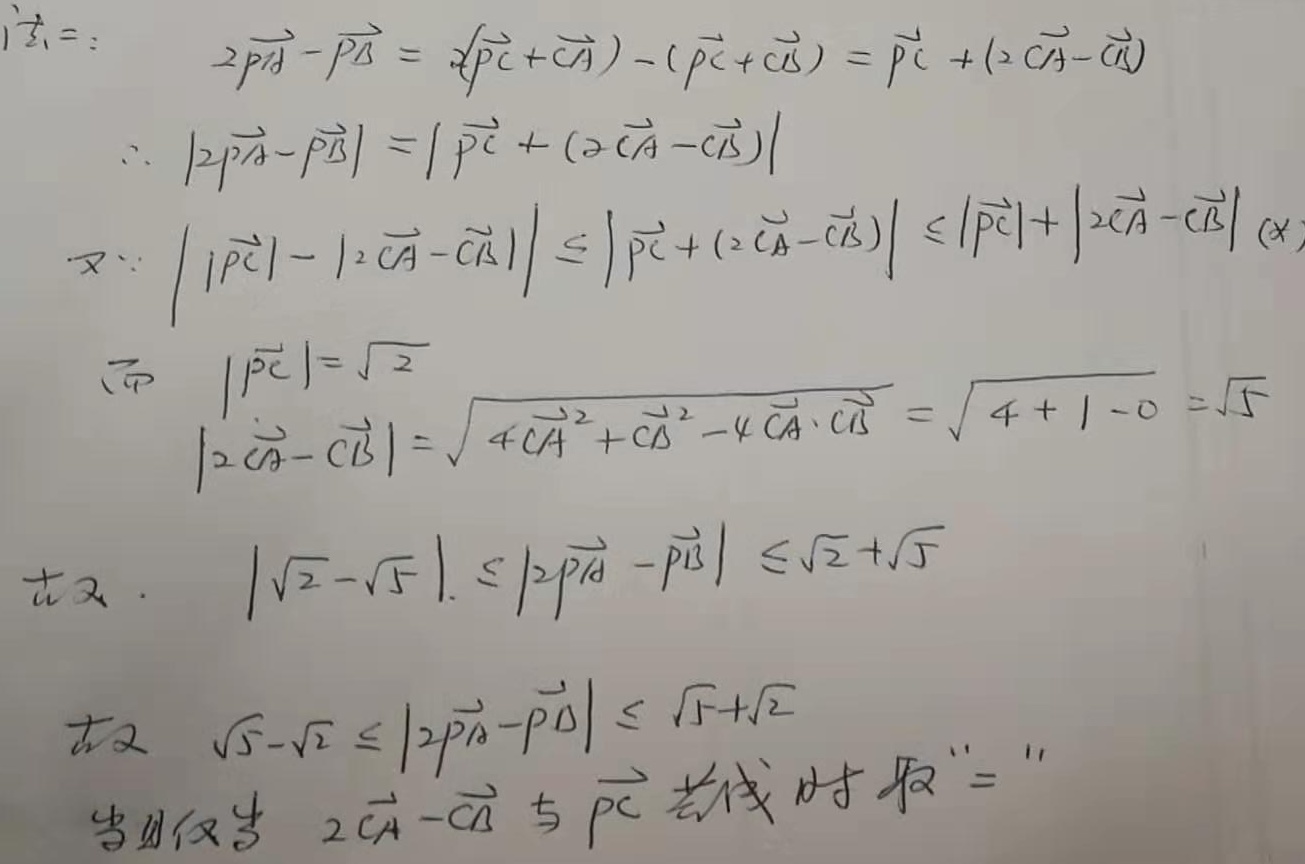 法二: 2\overrightarrow{PA}-\overrightarrow{PB} = 2(\overrightarrow{PC}+\overrightarrow{CA})-(\overrightarrow{PC}+\overrightarrow{CB}) = \overrightarrow{PC}+(2\overrightarrow{CA}-\overrightarrow{CB})
∴ |2\overrightarrow{PA}-\overrightarrow{PB}| = |\overrightarrow{PC}+(2\overrightarrow{CA}-\overrightarrow{CB})|
又∵ ||\overrightarrow{PC}|-|2\overrightarrow{CA}-\overrightarrow{CB}|| ≤ |\overrightarrow{PC}+(2\overrightarrow{CA}-\overrightarrow{CB})| ≤ |\overrightarrow{PC}|+|2\overrightarrow{CA}-\overrightarrow{CB}| (*)
而 |\overrightarrow{PC}|=\sqrt{2}
|2\overrightarrow{CA}-\overrightarrow{CB}|=\sqrt{4\overrightarrow{CA}^2+\overrightarrow{CB}^2-4\overrightarrow{CA}·\overrightarrow{CB}} = \sqrt{4+1-0} = \sqrt{5}
故. |\sqrt{2}-\sqrt{5}|. ≤ |2\overrightarrow{PA}-\overrightarrow{PB}| ≤ \sqrt{2}+\sqrt{5}
故 \sqrt{5}-\sqrt{2} ≤ |2\overrightarrow{PA}-\overrightarrow{PB}| ≤ \sqrt{5}+\sqrt{2}
当且仅当 2\overrightarrow{CA}-\overrightarrow{CB} 与 \overrightarrow{PC} 共线时取"="